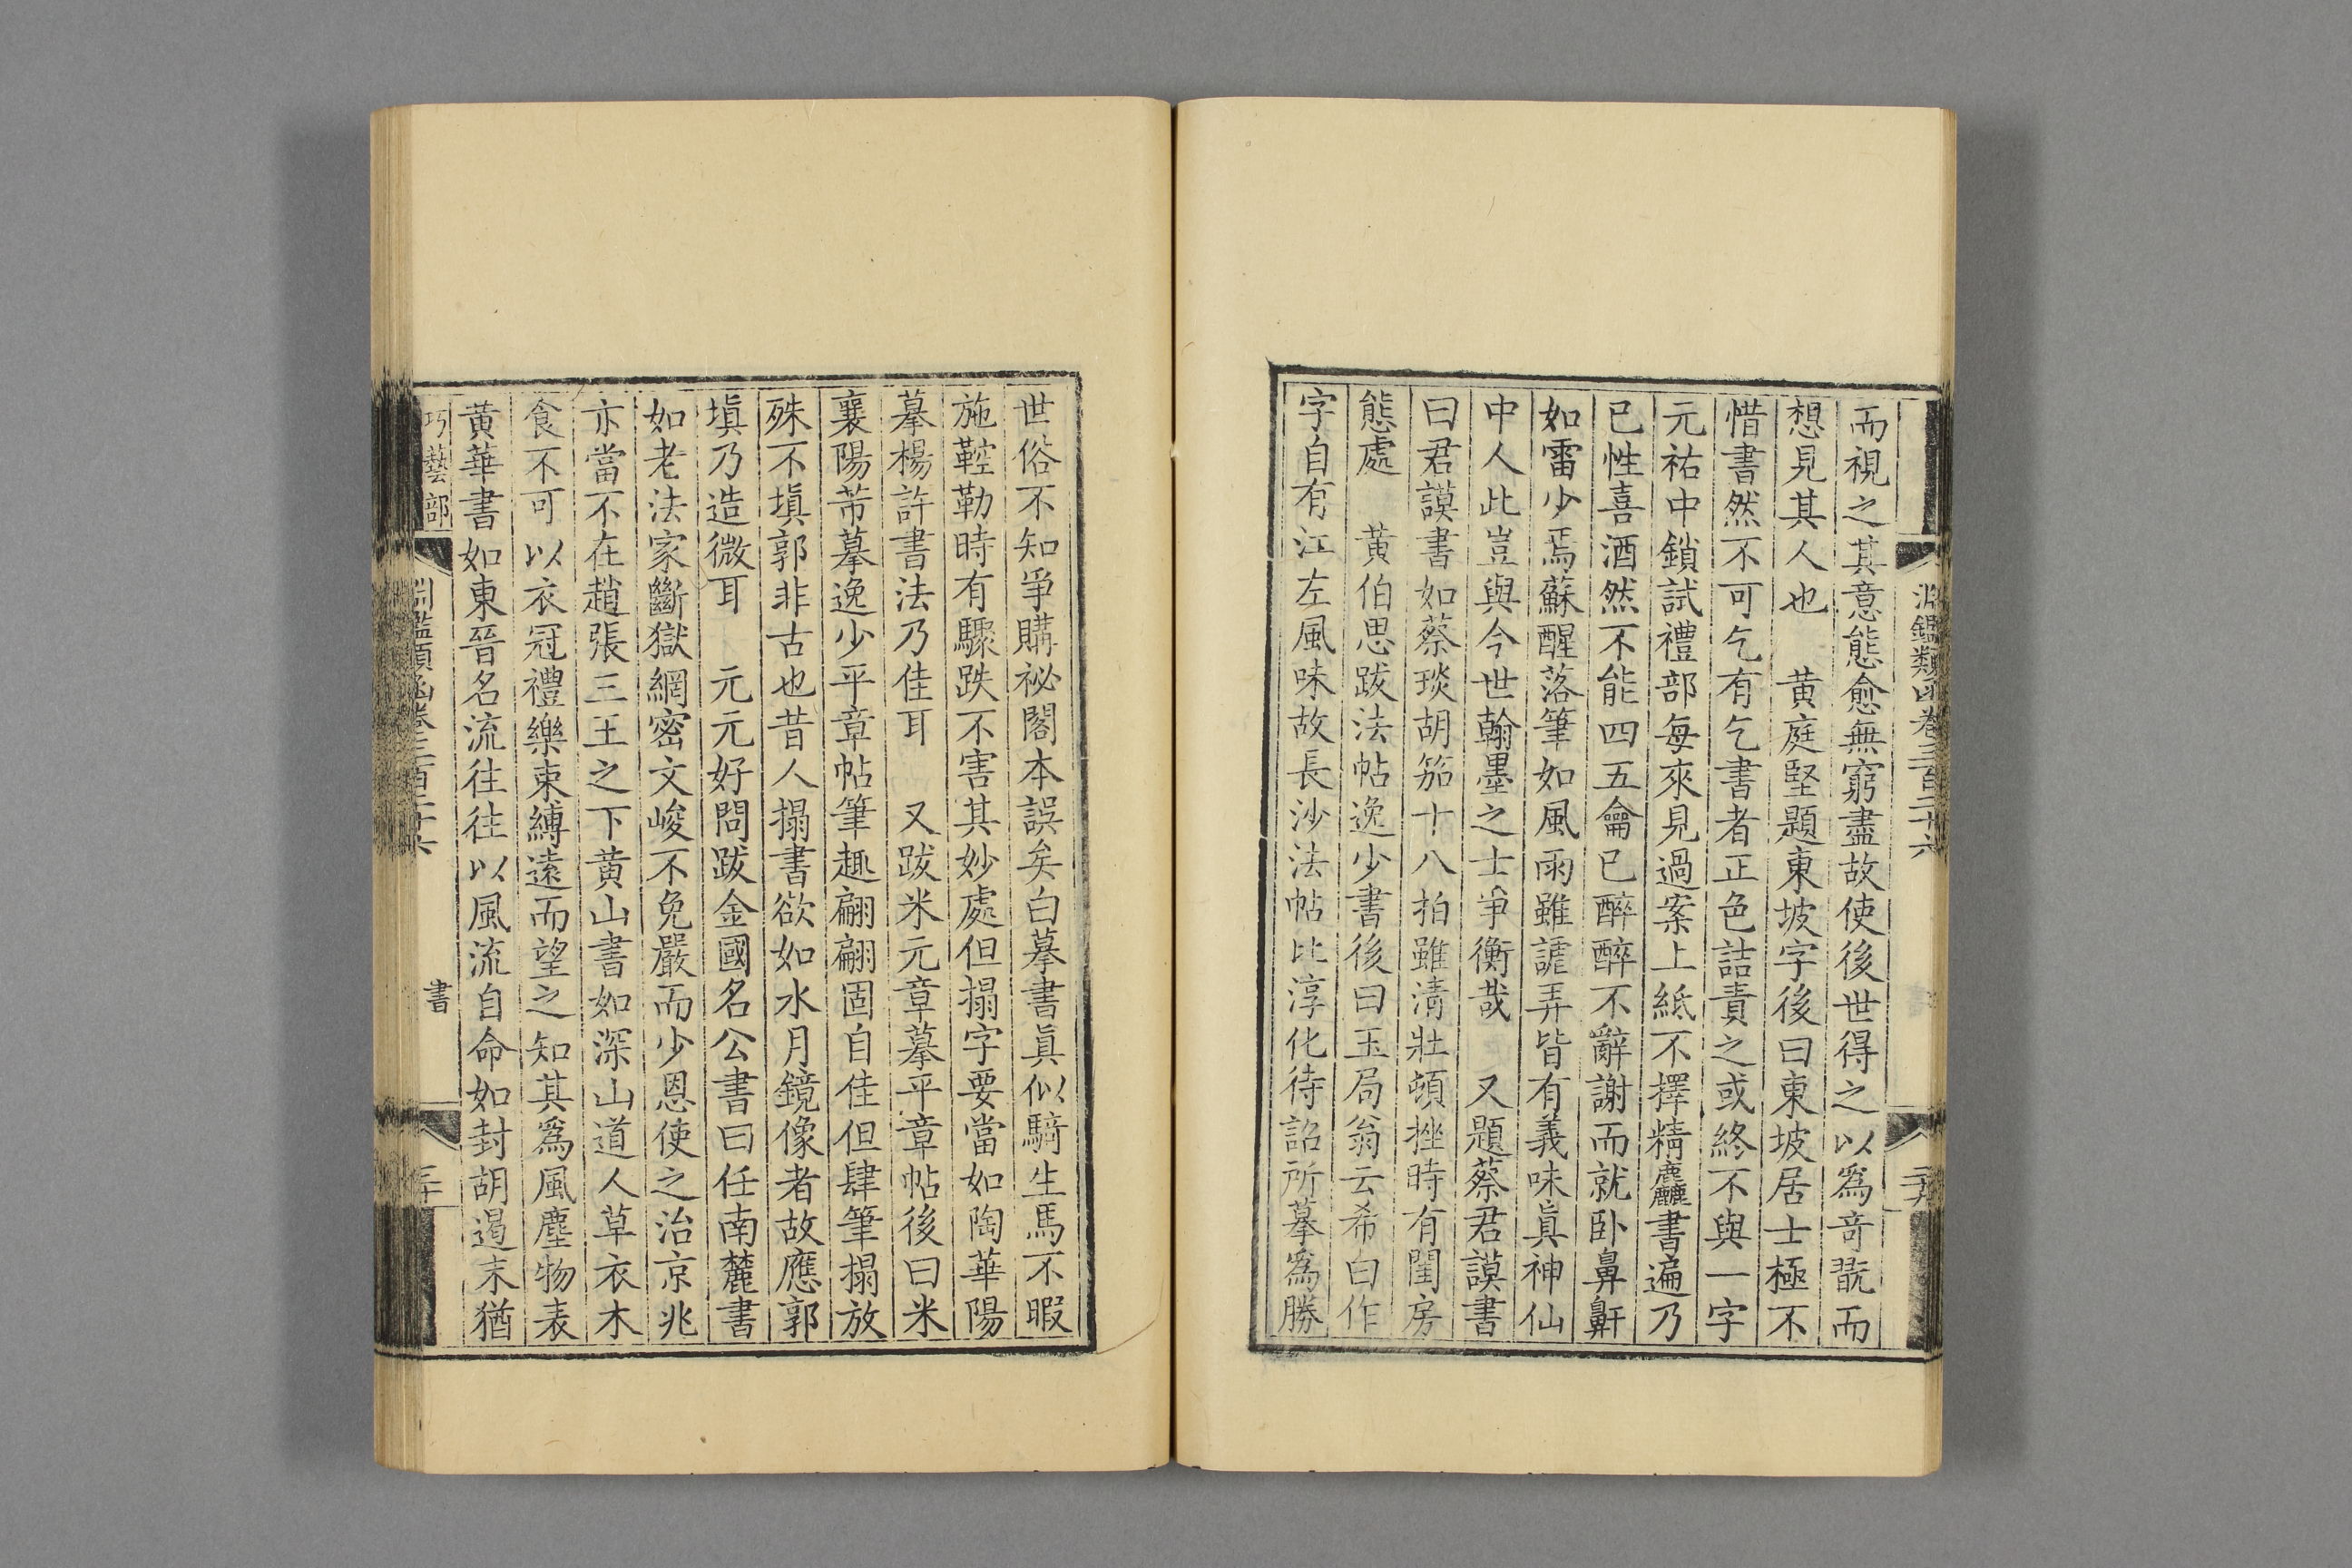 淵鑑類函卷三百二十六
而視之其意態愈無窮盡故使後世得之以爲奇翫而
想見其人也　黄庭堅題東坡字後曰東坡居士極不
惜書然不可乞有乞書者正色詰責之或終不與一字
元祐中鎖試禮部每來見過案上紙不擇精麤書遍乃
已性喜酒然不能四五龠已醉醉不辭謝而就卧鼻鼾
如雷少焉蘇醒落筆如風雨雖謔弄皆有義味眞神仙
中人此豈與今世翰墨之士爭衡哉　又題蔡君謨書
曰君謨書如蔡琰胡笳十八拍雖清壯頓挫時有閨房
態處　黄伯思跋法帖逸少書後曰玉局翁云希白作
字自有江左風味故長沙法帖比淳化待詔所摹爲勝
世俗不知爭購祕閣本誤矣白摹書眞似騎生馬不暇
施鞚勒時有驟跌不害其妙處但搨字要當如陶華陽
摹楊許書法乃佳耳　又跋米元章摹平章帖後曰米
襄陽芾摹逸少平章帖筆趣翩翩固自佳但肆筆搨放
殊不塡郭非古也昔人搨書欲如水月鏡像者故應郭
塡乃造微耳　元元好問跋金國名公書曰任南麓書
如老法家斷獄網密文峻不免嚴而少恩使之治京兆
亦當不在趙張三王之下黄山書如深山道人草衣木
食不可以衣冠禮樂束縛遠而望之知其爲風塵物表
黄華書如東晉名流往往以風流自命如封胡遏末猶
巧藝部
淵鑑類函卷三百二十六
書
三十